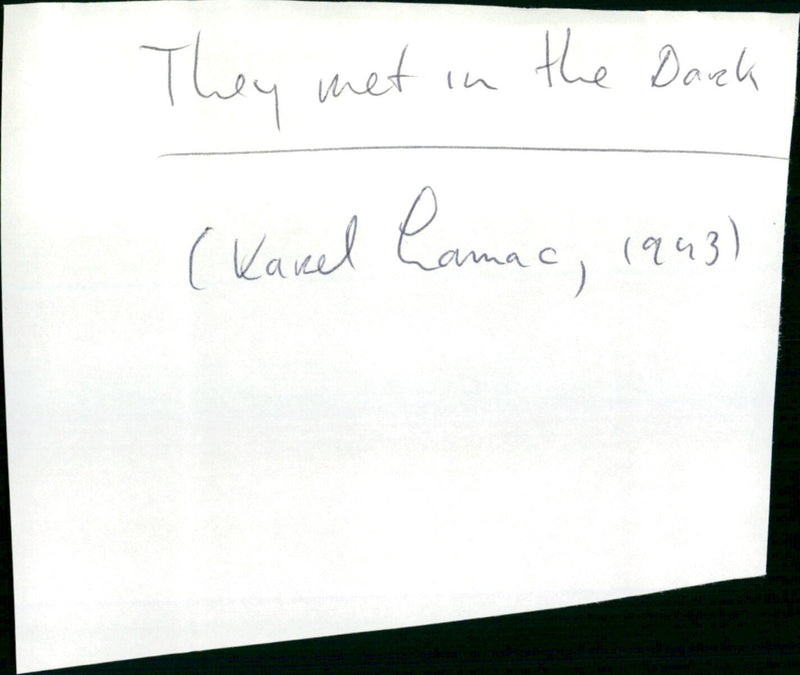 They met in the Dark
(Karel Lamac, 1943)